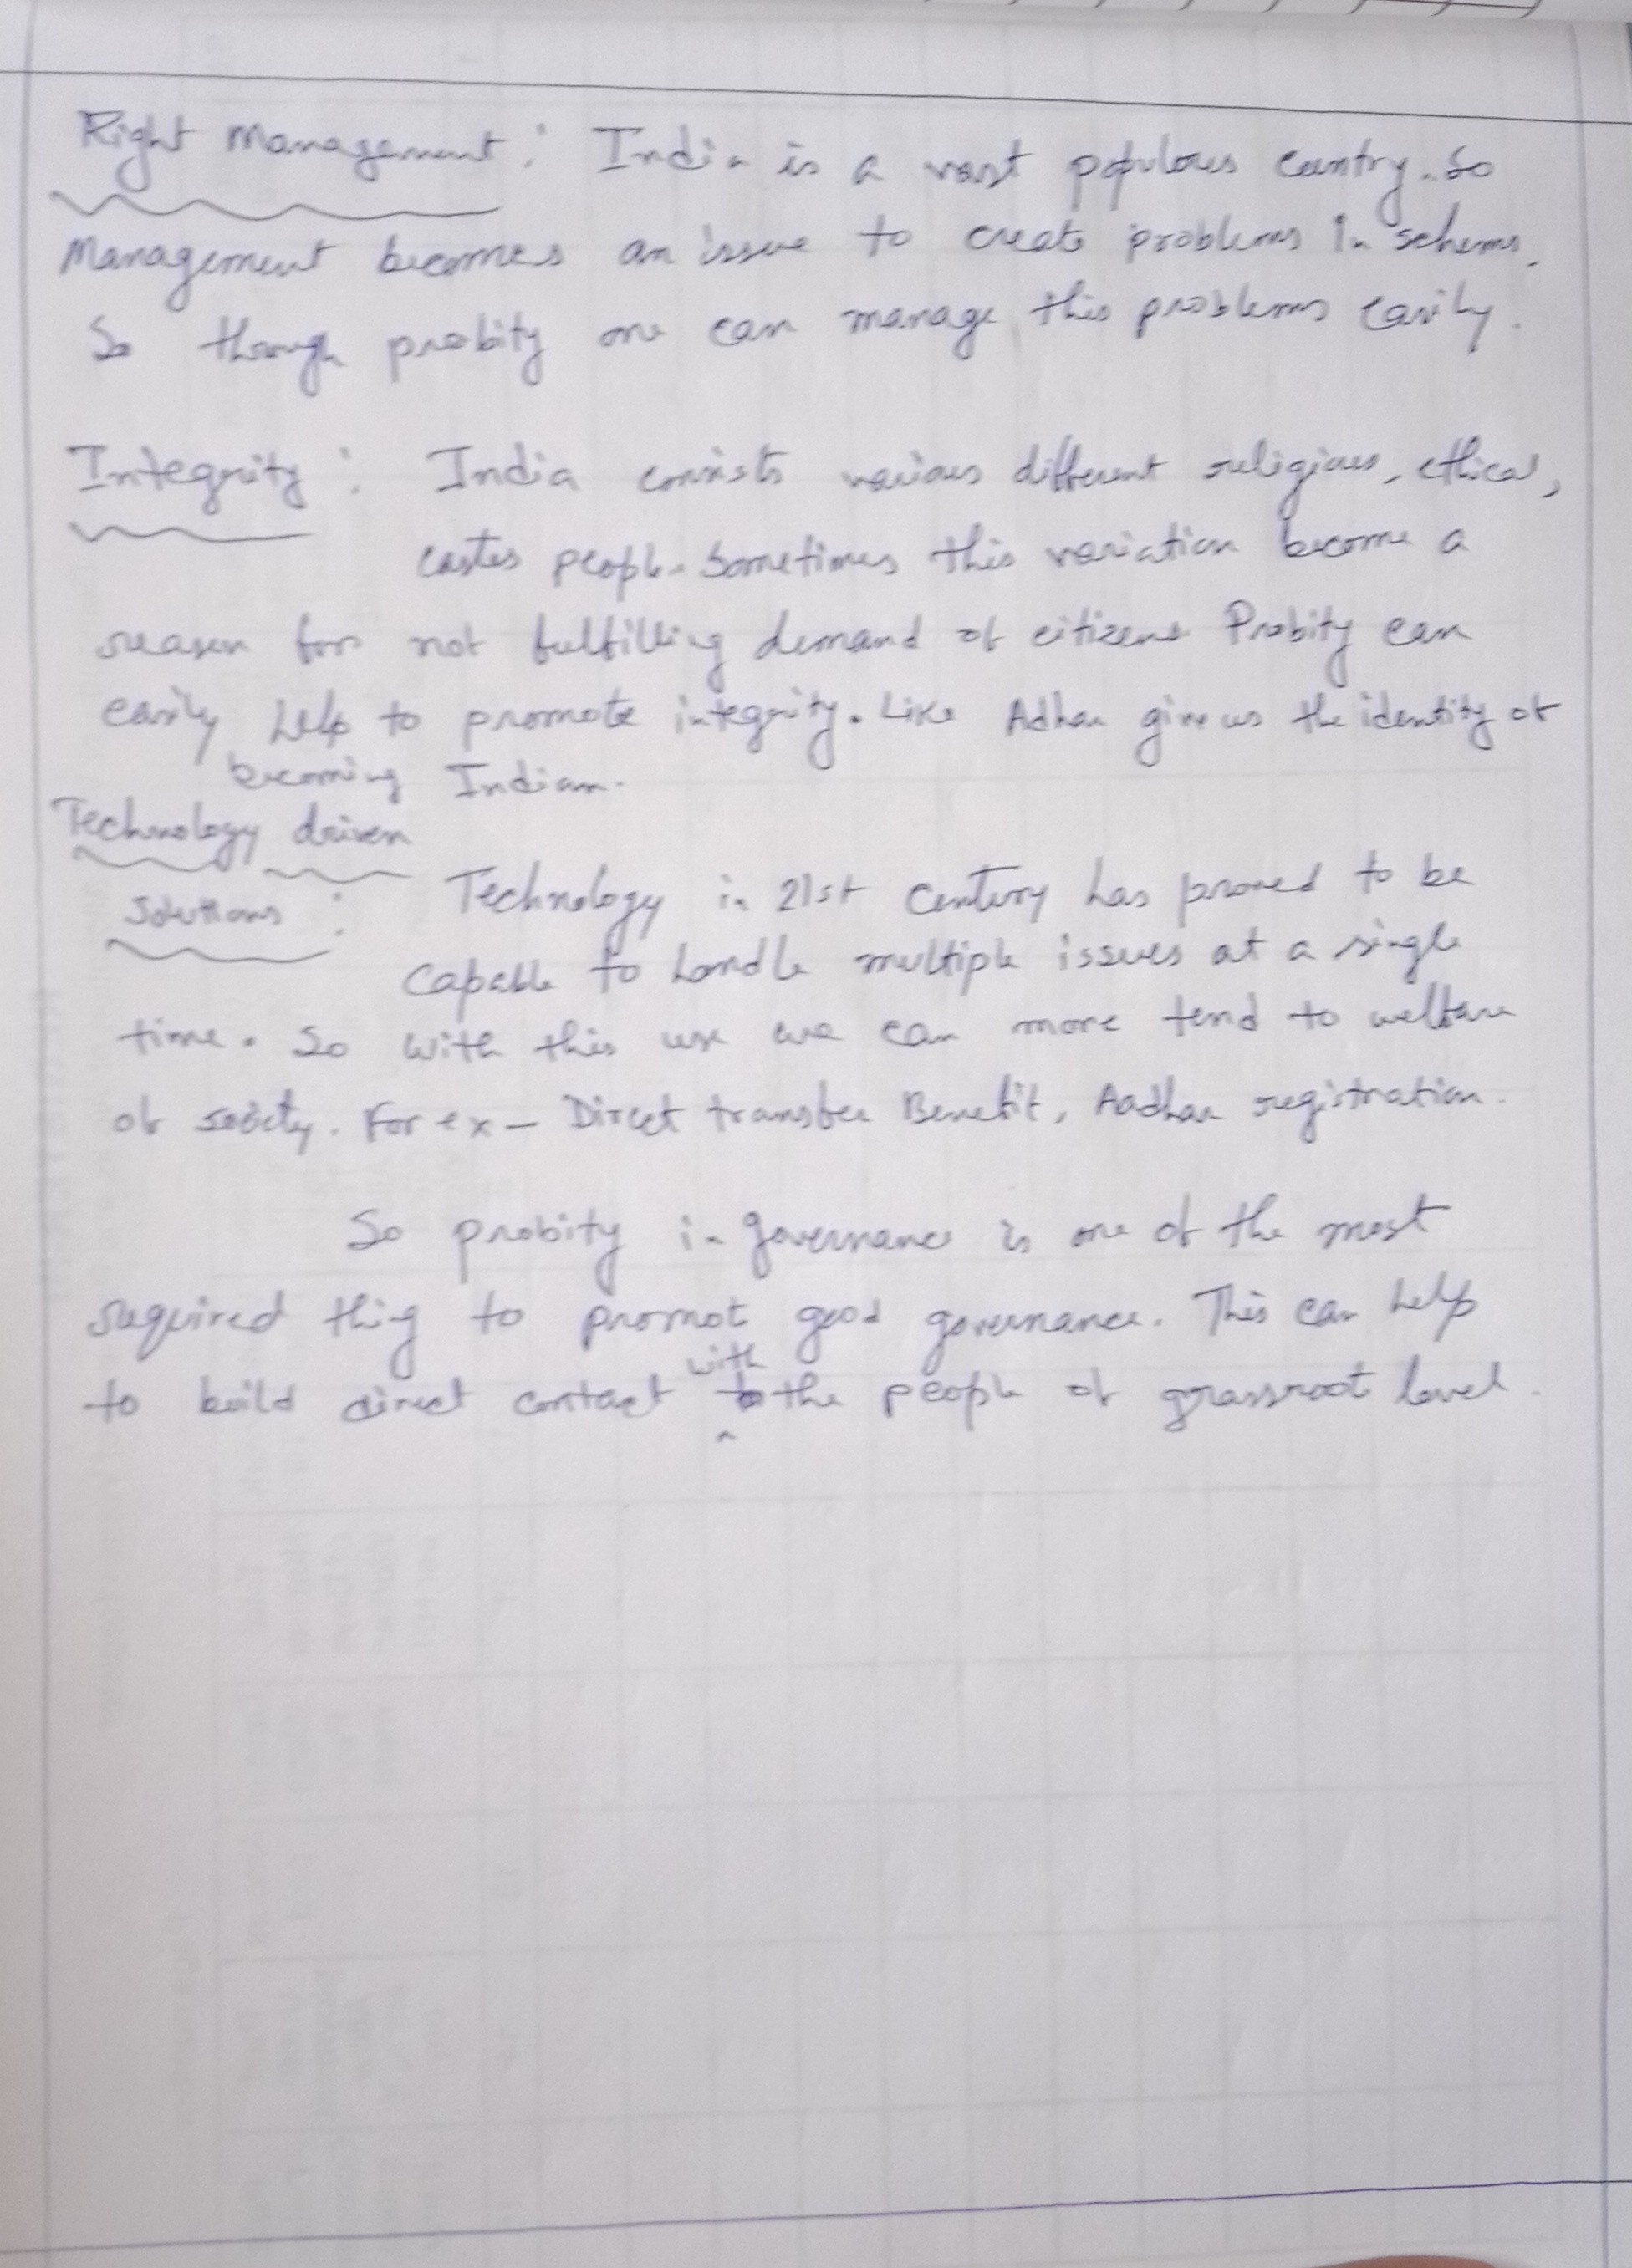 Right Management : India is a vast populous country. So
Management becomes an issue to create problems in schems.
So though probity one can manage this problems easily.
Integrity : India consists various different religious, ethical,
castes people. Sometimes this variation become a
reason for not fulfilling demand of citizens Probity can
easily help to promote integrity. Like Adhar give us the identity of
becoming Indian.
Technology driven
Solutions : Technology in 21st century has proved to be
capable to handle multiple issues at a single
time. So with this use we can more tend to welfare
of society. For ex - Direct transfer Benefit, Aadhar registration.
So probity in governance is one of the most
required thing to promot good governance. This can help
with
to build direct contact the people of grassroot level.